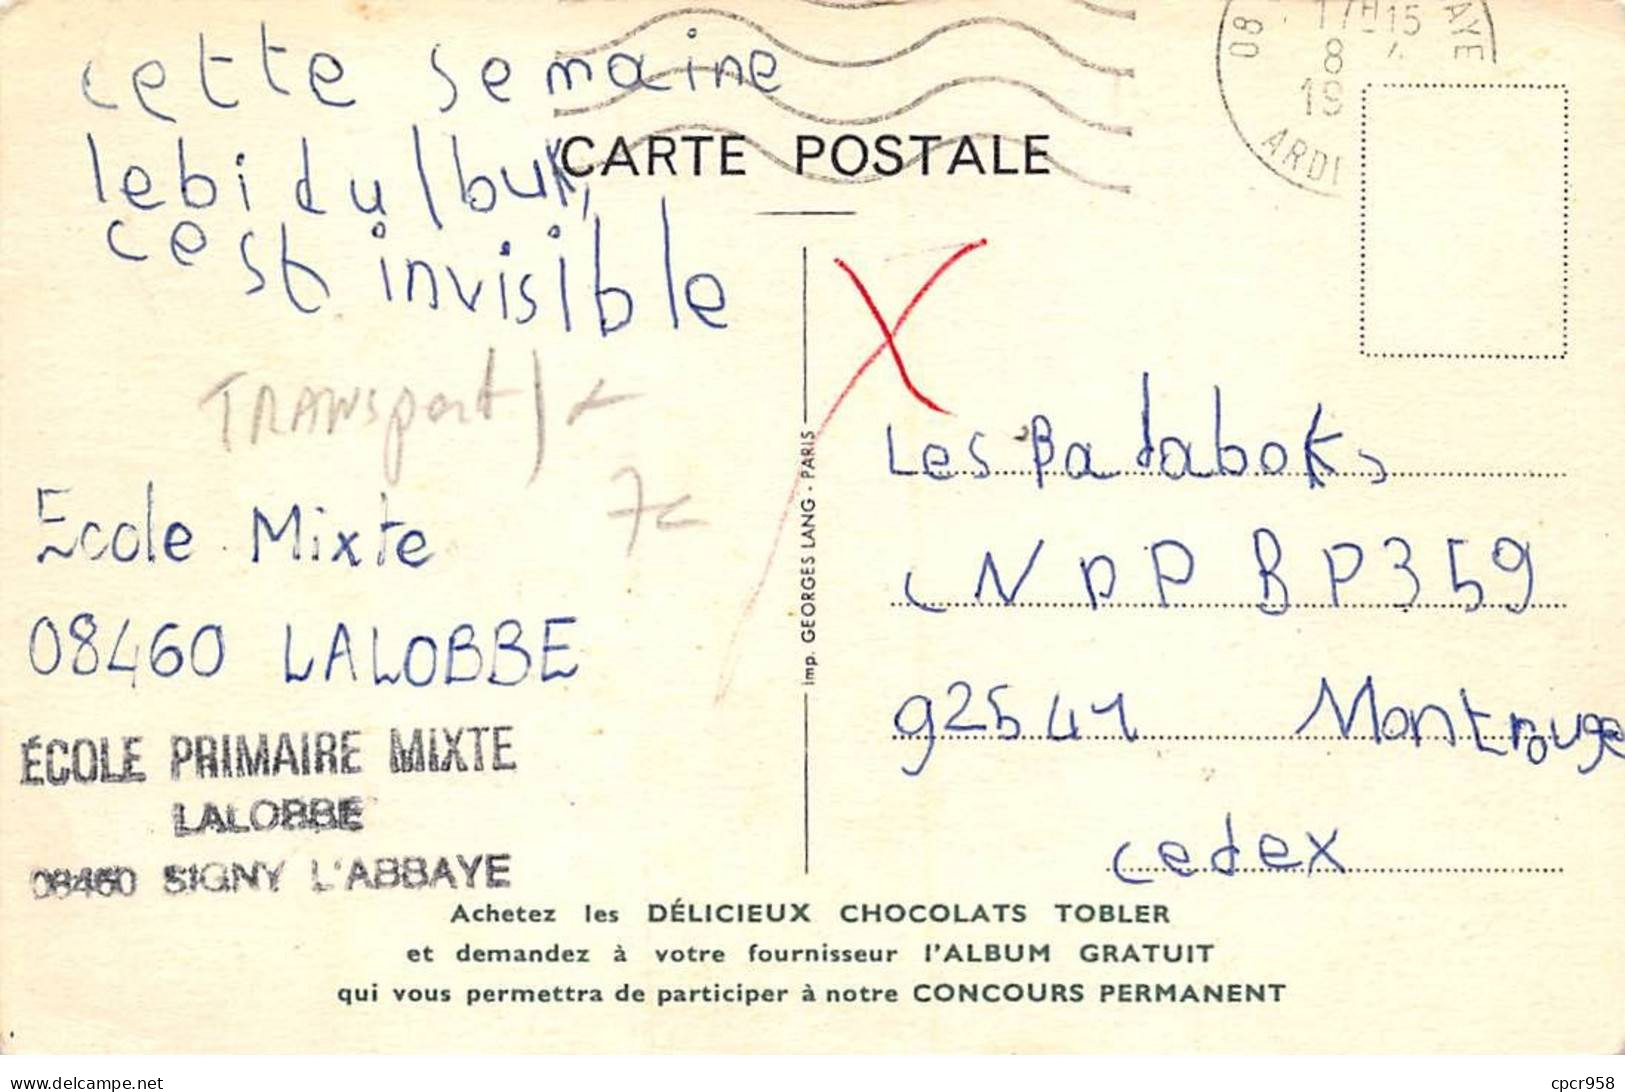 cette semaine
lebidulbuk,
c'est invisible
TRANSport)
7c
Ecole Mixte
08460 LALOBBE
ÉCOLE PRIMAIRE MIXTE
LALOBBE
08460 SIGNY L'ABBAYE
CARTE POSTALE
08 17H15 AYE
8
19
ARD
Imp. GEORGES LANG - PARIS
Les Pataboks
CNDP BP359
92541 Montrouge
cedex
Achetez les DÉLICIEUX CHOCOLATS TOBLER
et demandez à votre fournisseur l'ALBUM GRATUIT
qui vous permettra de participer à notre CONCOURS PERMANENT
https://www.delcampe.net
cpcr958